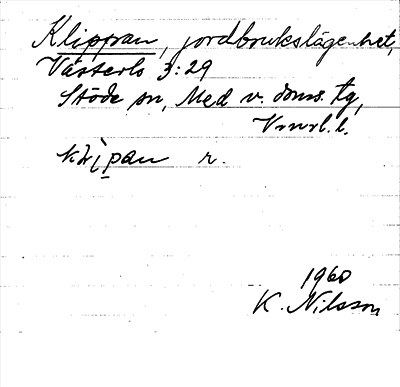 Klippan, jordbrukslägenhet,
Västerlo 3:29
Stöde sn, Med v. doms. tg,
Vnrl. l.
klipan r.
1960
K. Nilsson